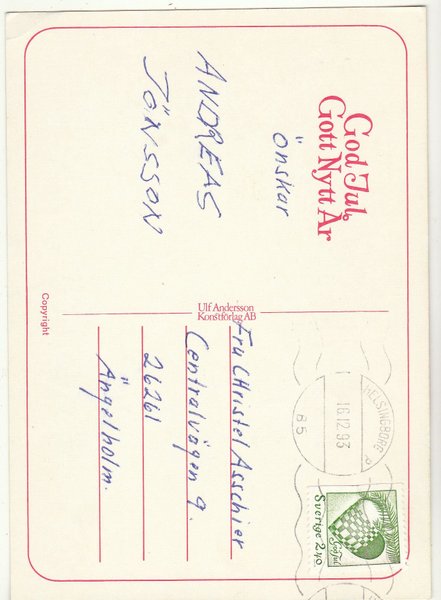 God Jul
Gott Nytt År
önskar
ANDREAS
JÖNSSON
Ulf Andersson
Konstförlag AB
Copyright
Fru CHristel Asschier
Centralvägen 9.
26261
Ängelholm.
HELSINGBORG
16.12.93
65
God Jul
Sverige 2,40